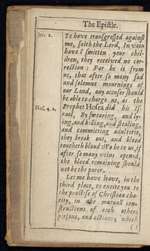 The Epistle.
Jer. 2.
Ye have transgressed against
me, saith the Lord, In vain
have I smitten your chil-
dren, they received no cor-
rection: Far be it from
us, that after so many sad
and solemne mournings of
our Land, any accuser should
be able to charge us, as the
Hos. 4. 2.
Prophet Hosea did his Is-
rael, By swearing, and ly-
ing, and killing, and stealing,
and committing adultery,
they break out, and blood
toucheth blood: We be so
after so many veins opened,
the blood remaining should
not be the purer.
Let me have leave, in the
third place, to encite you to
the practise of Christian cha-
rity, in the mutual con-
structions of each others
persons, and actions; which